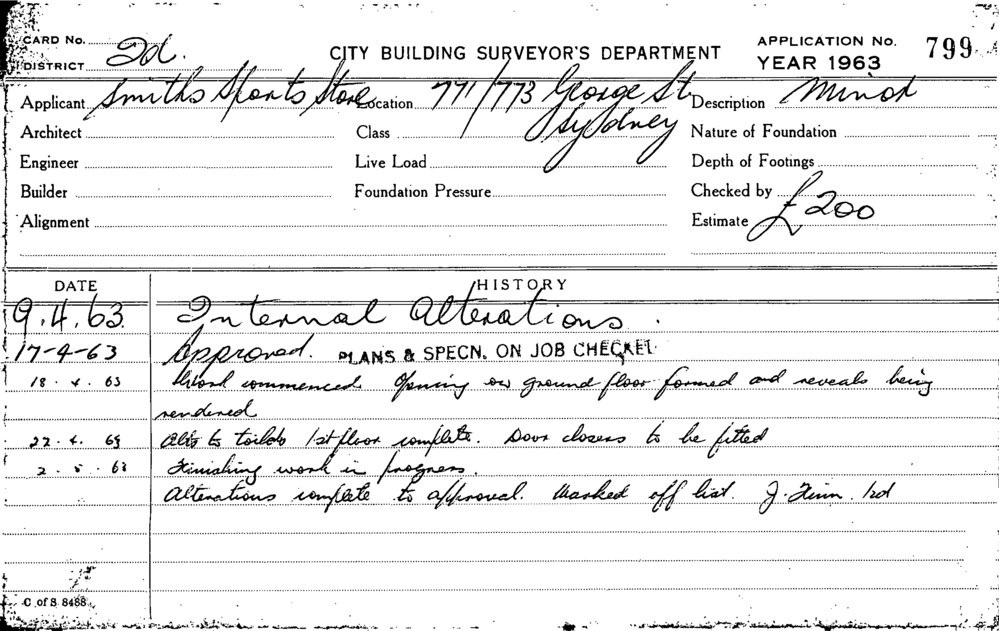 CARD No.
DISTRICT 2d.
CITY BUILDING SURVEYOR'S DEPARTMENT
APPLICATION No. 799
YEAR 1963
Applicant Smiths Sports Store Location 771/773 George St Sydney Description Minor
Architect Class Nature of Foundation
Engineer Live Load Depth of Footings
Builder Foundation Pressure Checked by
Alignment Estimate £200
DATE HISTORY
9.4.63. Internal Alterations.
17-4-63 Approved. PLANS & SPECN. ON JOB CHECKED
18.4.63 Work commenced Opening on ground floor formed and reveals being
rendered
22.4.63 Alts to toilets 1st floor complete. Door closers to be fitted
2.5.63 Finishing work in progress.
Alterations complete to approval. Marked off list. J.
C of S 8488